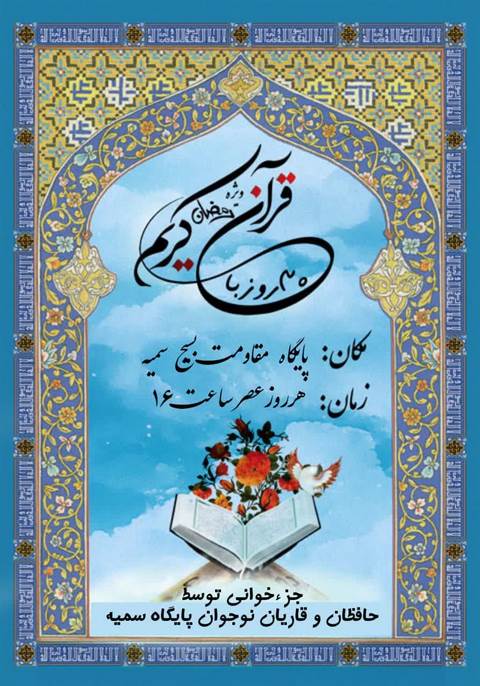 ویژه رمضان
۳۰ روز با
قرآن کریم
مکان: پایگاه مقاومت بسیج سمیه
زمان: هر روز عصر ساعت ۱۶
جزءخوانی توسط
حافظان و قاریان نوجوان پایگاه سمیه